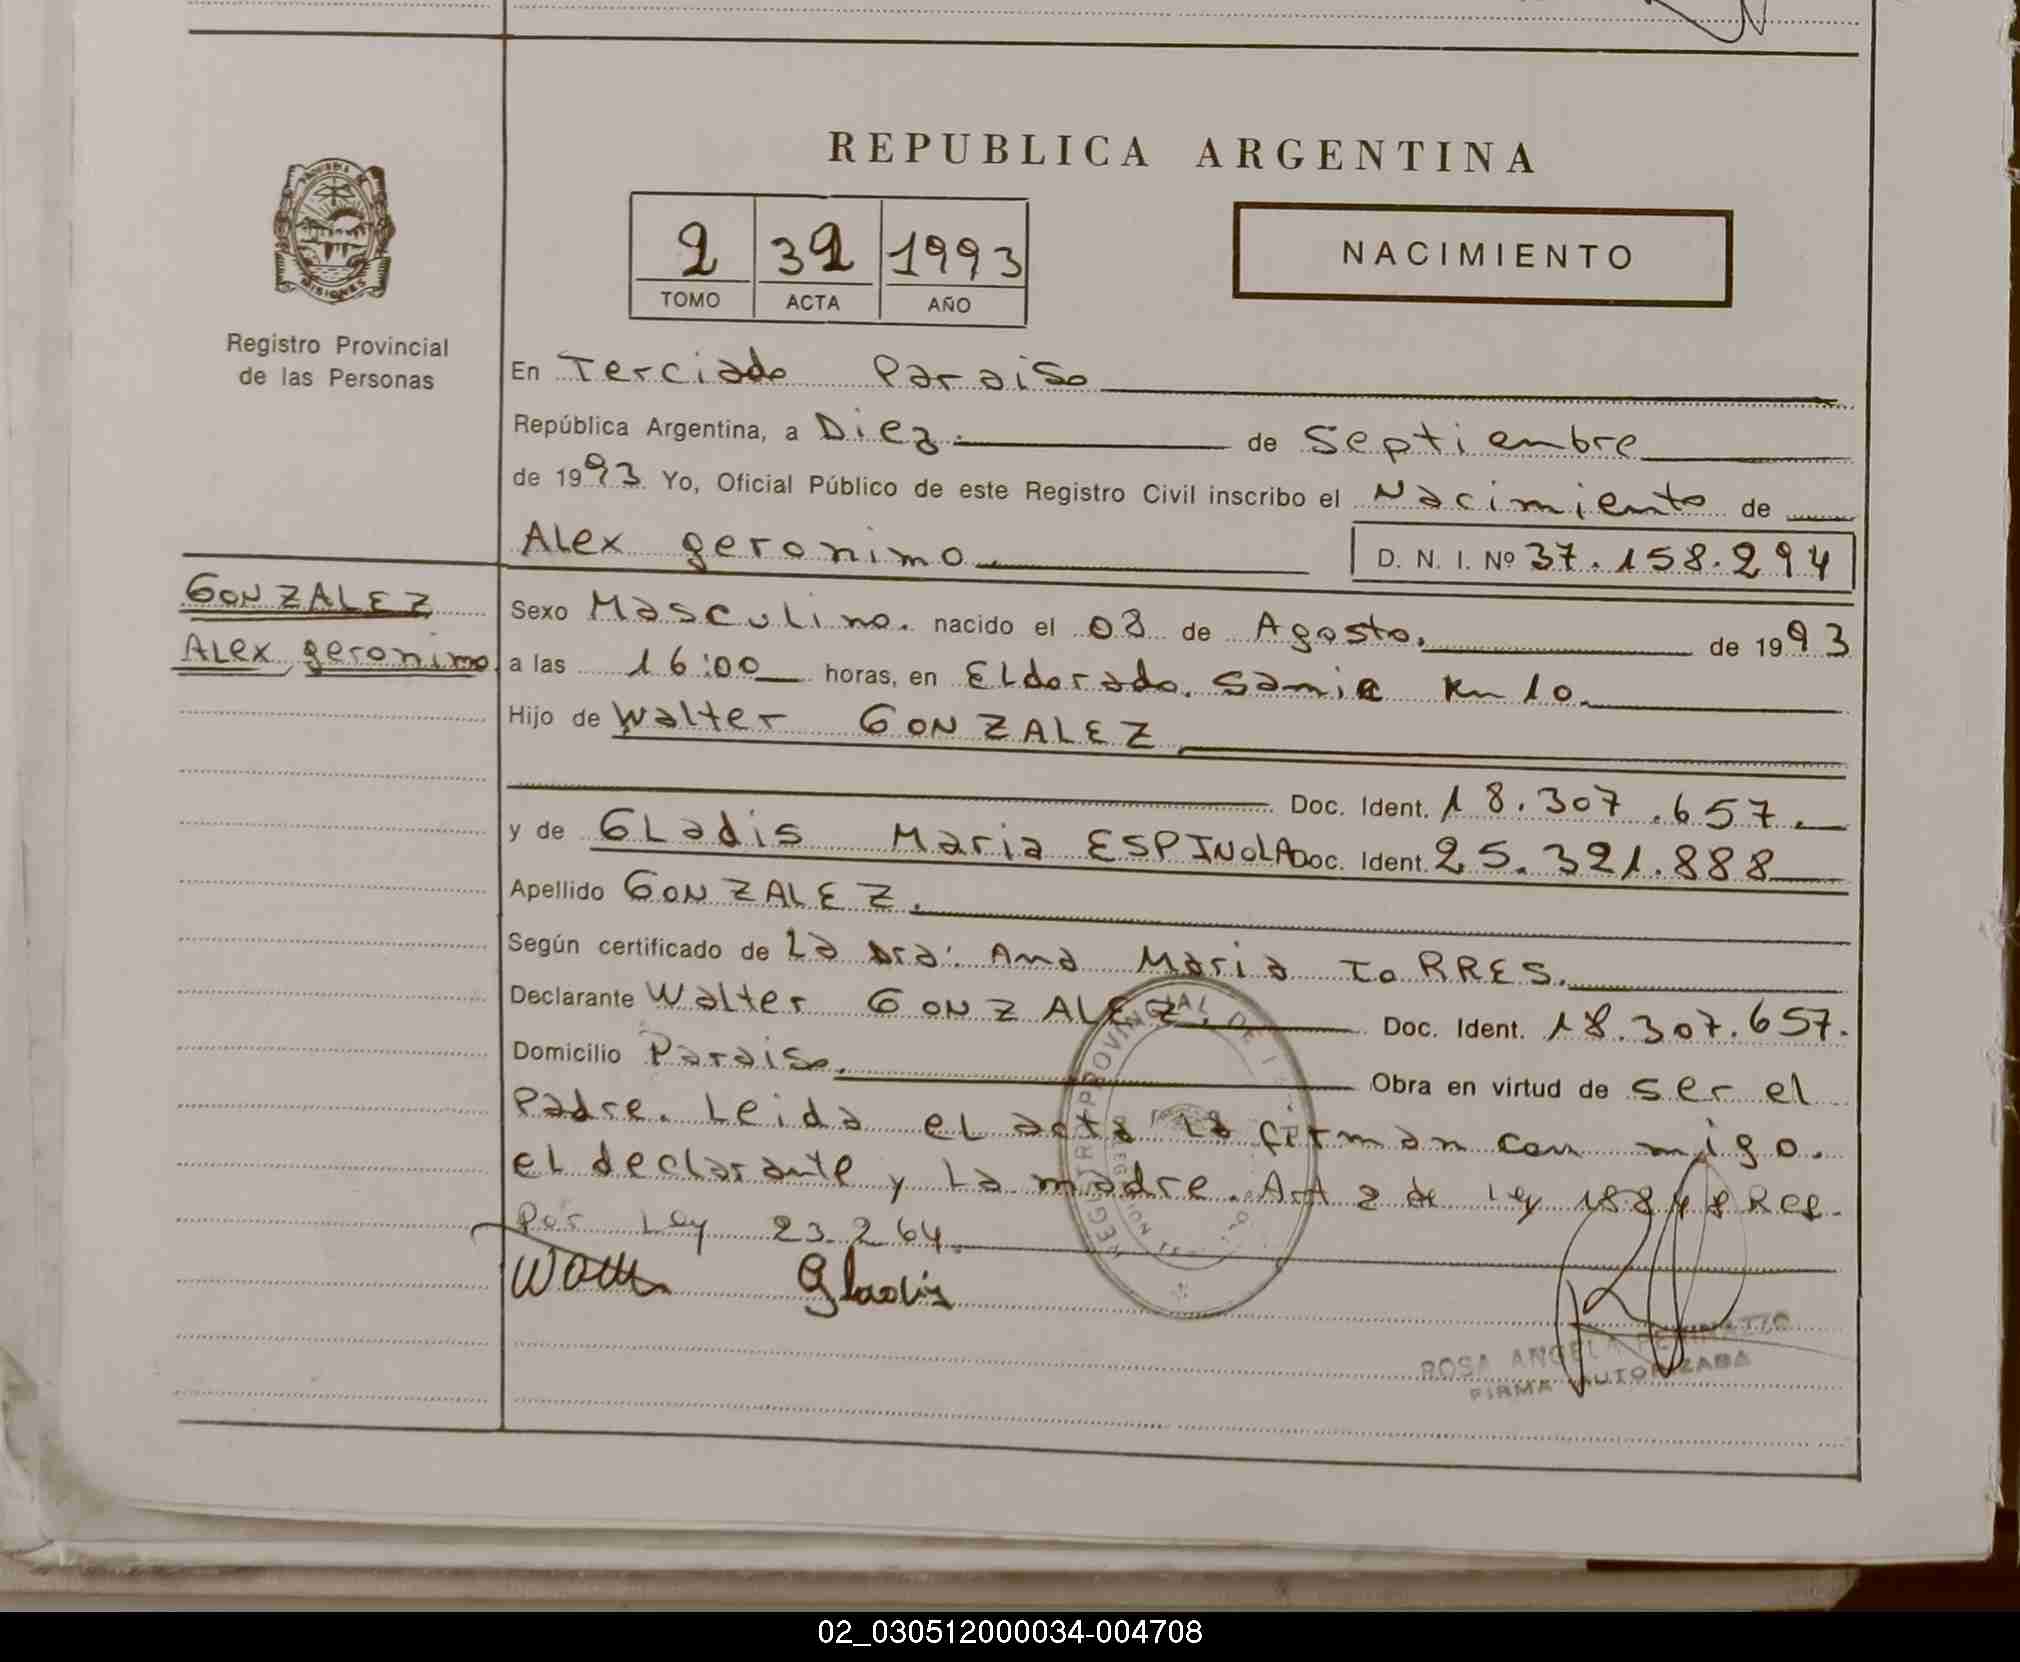 REPUBLICA ARGENTINA
2 32 1993
TOMO ACTA AÑO
NACIMIENTO
MISIONES
Registro Provincial
de las Personas
En Terciado Paraiso
República Argentina, a Diez. de Septiembre
de 1993 Yo, Oficial Público de este Registro Civil inscribo el Nacimiento de
Alex geronimo
D. N. I. Nº 37.158.294
GONZALEZ
Alex geronimo
Sexo Masculino. nacido el 08 de Agosto. de 1993
a las 16:00 horas, en Eldorado. Samic Km 10.
Hijo de Walter GONZALEZ
Doc. Ident. 18.307.657.
y de GLadis Maria ESPINOLA Doc. Ident. 25.321.888
Apellido GONZALEZ.
Según certificado de La Dra: Ana Maria ToRRES.
Declarante Walter GONZALEZ. Doc. Ident. 18.307.657.
Domicilio Paraiso. Obra en virtud de ser el
Padre. Leida el acta la firman con migo.
el declarante y La madre. Art 2 de Ley 18848 Ref.
Por Ley 23.264.
Gladis
ROSA ANGELA
FIRMA AUTORIZADA
02_030512000034-004708